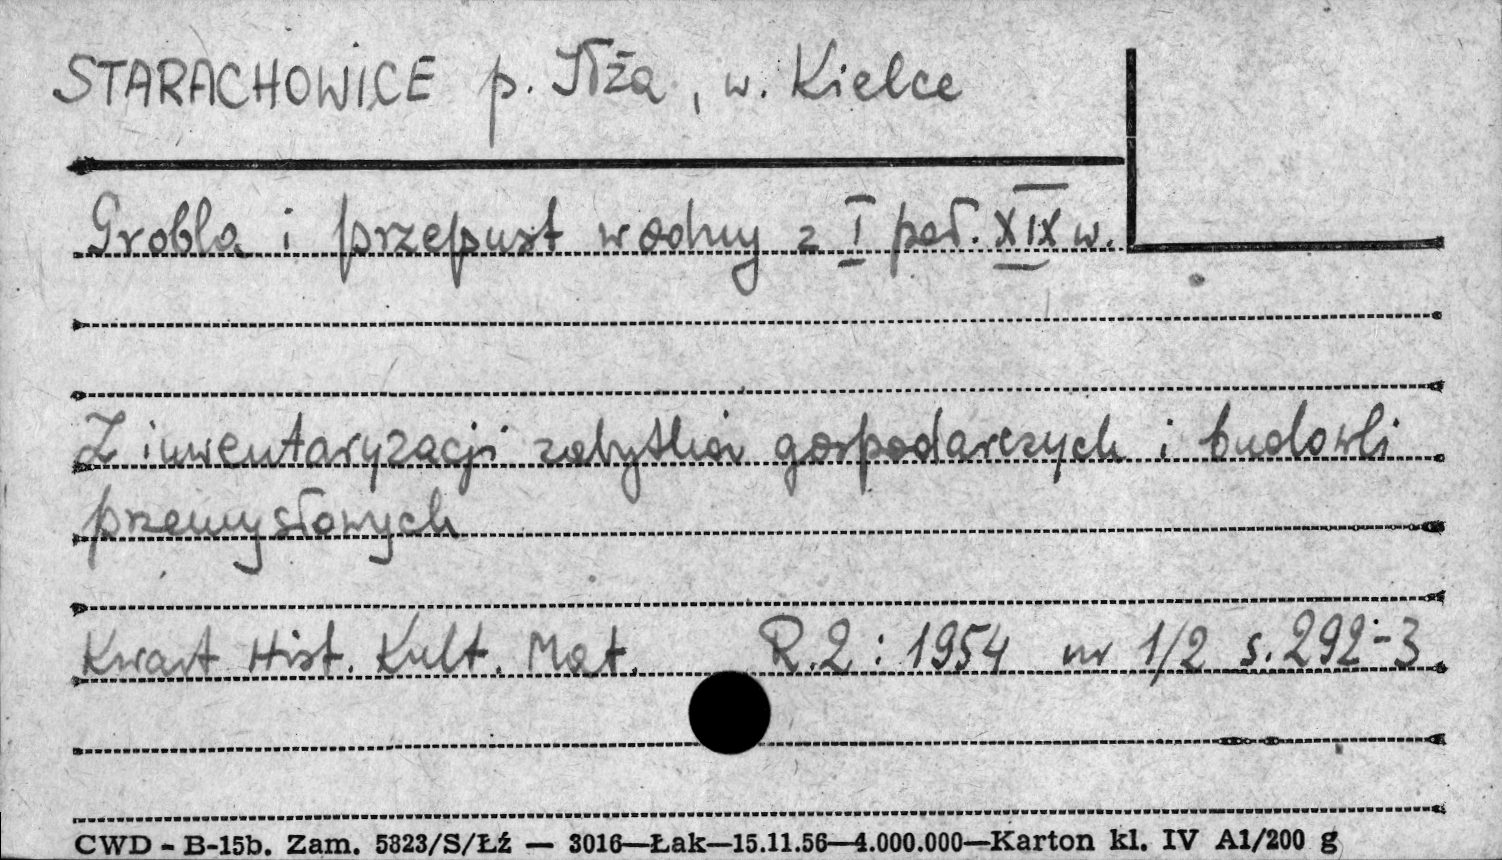 STARACHOWICE p. Iłża, w. Kielce
Grobla i przepust wodny z I poł. XIX w.
Z inwentaryzacji zabytków gospodarczych i budowli
przemysłowych
Kwart Hist. Kult. Mat. R.2: 1954 nr 1/2 s. 292-3
CWD - B-15b. Zam. 5823/S/Łź — 3016—Łak—15.11.56—4.000.000—Karton kl. IV A1/200 g